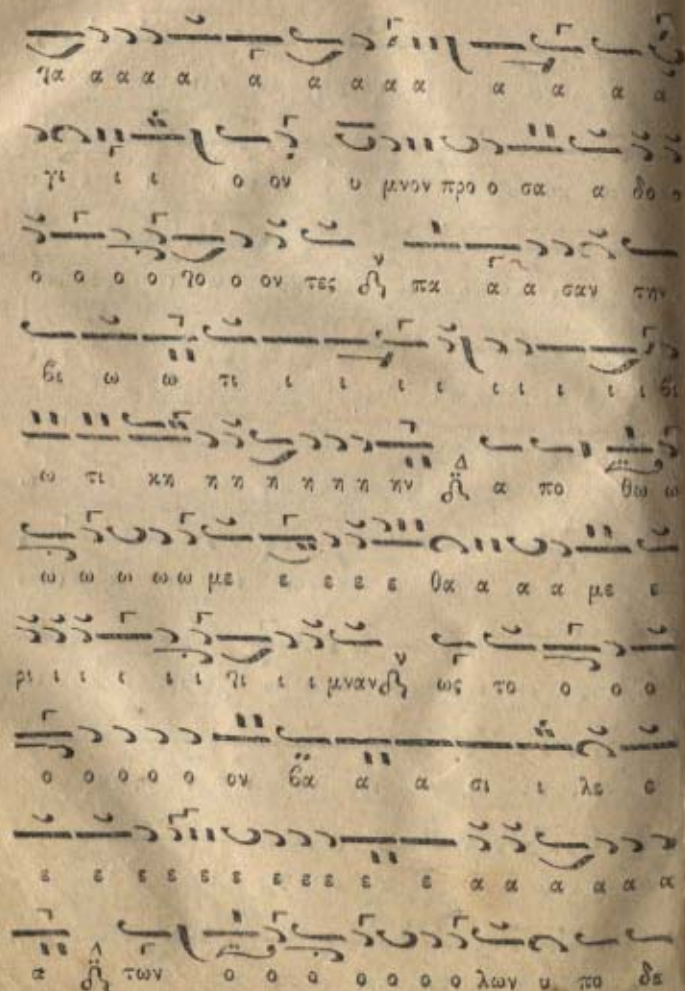 γα α α α α α α α α α α α α α
γι ι ι ο ον υ μνον προ ο σα α δο ο
ο ο ο ο γο ο ον τες πα α α σαν την
βι ω ω τι ι ι ι ι ι ι ι ι ι ι βι
ω τι κη η η η η η η ην Δ α πο θω ω
ω ω ω ω ω με ε ε ε ε θα α α α με ε
ρι ι ι ι ι ι γι ι ι μναν ν ως το ο ο ο
ο ο ο ο ο ον βα α α σι ι λε ε
ε ε ε ε ε ε ε ε ε ε ε α α α α α α
α Δ των ο ο ο ο ο ο ο λων υ πο δε